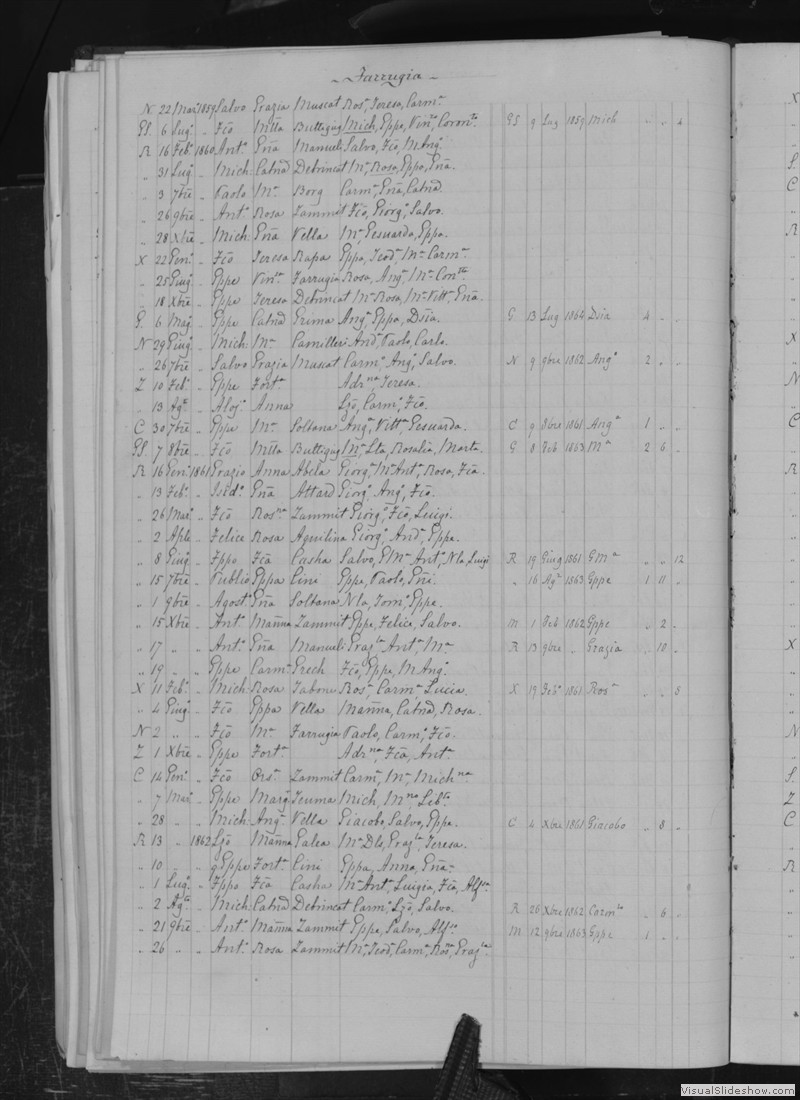 Farrugia
N 22 Mar. 1859 Salvo Grazia Muscat Ros.a, Teresa, Carm.a
GS. 6 Lug.o „ Fco Mtta Buttigieg Mich, Gppa, Vinza, Coronta GS 9 Lug 1859 Mich „ „ 4
R 16 Feb.o 1860 Ant.o Gna Manueli Salvo, Fco, M. Ang.a
„ 31 Lug.o „ Mich. Catnd Debrincat M.a, Rosa, Gppa, Gna.
„ 3 7bre „ Paolo M.a Borg Carm.a, Gna, Catnd
„ 26 9bre „ Ant.o Rosa Zammit Fco, Giorg.o, Salvo.
„ 28 Xbre „ Mich. Gna Vella M.a, Gesuarda, Gppa.
X 22 Gen.o „ Fco Teresa Rapa Gppa, Teod.a M.a Carm.a
„ 25 Giug.o „ Gppe Vinza Farrugia Rosa, Ang.a, M.a Conta
„ 18 Xbre „ Gppe Teresa Debrincat M.a Rosa, M.a Vitt.a, Gna.
G. 6 Mag.o „ Gppe Catnd Grima Ang.a, Gppa, Dsia. G 13 Lug 1864 Dsia 4 „ „
N 29 Giug.o „ Mich. M.a Camilleri And.a, Paolo, Carlo.
„ 26 7bre „ Salvo Grazia Muscat Carm.o, Ang.o, Salvo. N 9 9bre 1862 Ang.o 2 „ „
Z 10 Feb.o „ Gppe Fort.a Adr.na, Teresa.
„ 13 Ag.o „ Aloj.o Anna Lzo, Carm.o, Fco.
C 30 7bre „ Gppe M.a Soltana Ang.a, Vitt.a Gesuarda. C 9 8bre 1861 Ang.a 1 „ „
GS. 7 8bre „ Fco Mtta Buttigieg M.a, Lta, Rosalia, Marta. G 8 Feb 1863 M.a 2 6 „
R 16 Gen.o 1861 Grazio Anna Abela Giorg.o, M.a Ant.a, Rosa, Fca.
„ 13 Feb.o „ Isid.o Gna Attard Giorg.o, Ang.o, Fco.
„ 26 Mar. „ Fco Ros.na Zammit Giorg.o, Fco, Luigi.
„ 2 Aple „ Felice Rosa Aquilina Giorg.o, And.a, Gppe.
„ 8 Giug.o „ Fppo Fca Casha Salvo, GM.a Ant.o, Nla, Luigi R 19 Giug 1861 GM.a „ „ 12
„ 15 7bre „ Publio Gppa Cini Gppe, Paolo, Gni. „ 16 Ag.o 1863 Gppe 1 11 „
„ 1 9bre „ Agost.o Gna Soltana Nla, Tom.o, Gppe.
„ 15 Xbre „ Ant.o Manna Zammit Gppe, Felice, Salvo. M 1 Feb 1862 Gppe „ 2 „
„ 17 „ „ Ant.o Gna Manueli Graz.la, Ant.a, M.a R 13 9bre „ Grazia „ 10 „
„ 19 „ „ Gppe Carm.a Grech Fco, Gppe, M. Ang.o
X 11 Feb.o „ Mich. Rosa Tabone Ros.a, Carm.a Lucia. X 19 Feb.o 1861 Ros.a „ „ 8
„ 4 Giug.o „ Fco Gppa Vella Manna, Catnd, Rosa.
N 2 „ „ Fco M.a Farrugia Paolo, Carm.o, Fco.
Z 1 Xbre „ Gppe Fort.a Adr.na, Fca, Ant.a
C 14 Gen.o „ Fco Ors.a Zammit Carm.a, M.a, Mich.na
„ 7 Mar. „ Gppe Marg.a Teuma Mich, M.na, Lib.ta
„ 28 „ „ Mich. Ang.a Vella Giacobo, Salvo, Gppe. C 4 Xbre 1861 Giacobo „ 8 „
R 13 „ 1862 Lzo Manna Galea M.a Dls, Graz.la, Teresa.
„ 10 „ „ Gppe Fort.a Cini Gppa, Anna, Gna.
„ 1 Lug.o „ Fppo Fca Casha M.a Ant.a, Luigia, Fca, Alf.sa
„ 2 Ag.to „ Mich. Catnd Debrincat Carm.o, Lzo, Salvo. R 26 Xbre 1862 Carm.lo „ 6 „
„ 21 9bre „ Ant.o Manna Zammit Gppe, Salvo, Alf.so M 12 9bre 1863 Gppe 1 „ „
„ 26 „ „ Ant.o Rosa Zammit M.a, Teod.a, Carm.a, Ros.a, Graz.la
VisualSlideshow.com